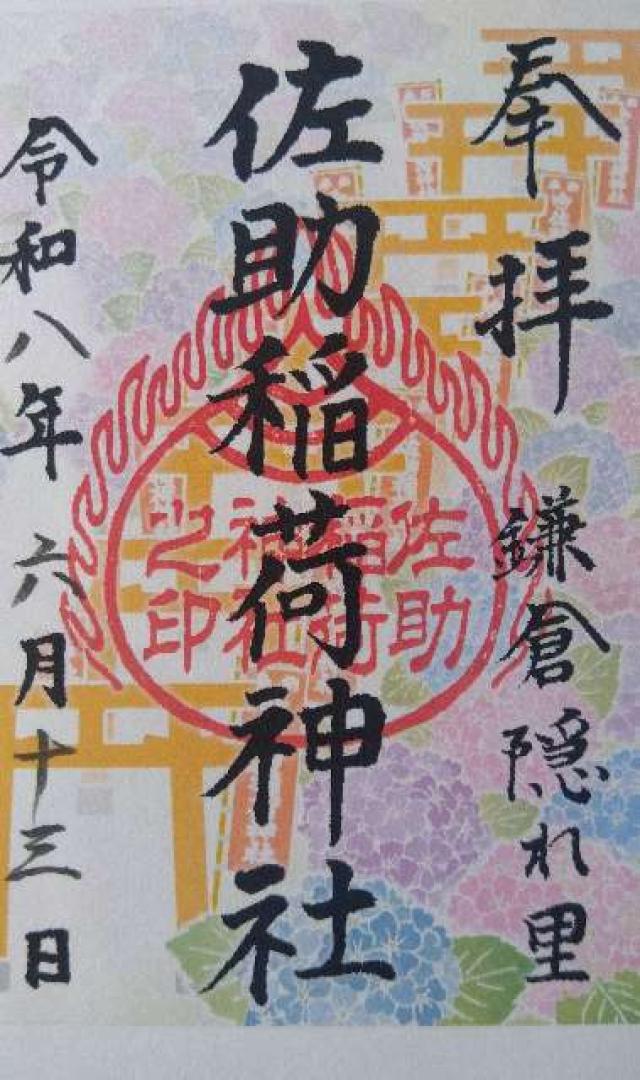 奉拝
鎌倉隠れ里
佐助稲荷神社
佐助
稲荷
神社
之印
令和八年六月十三日